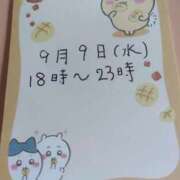 9月9日(水)
18時〜23時